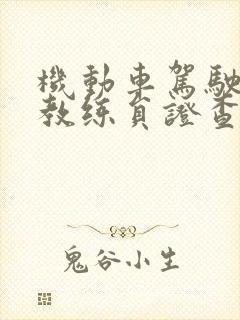 機動車駕駛
教练員證查
鬼谷小生